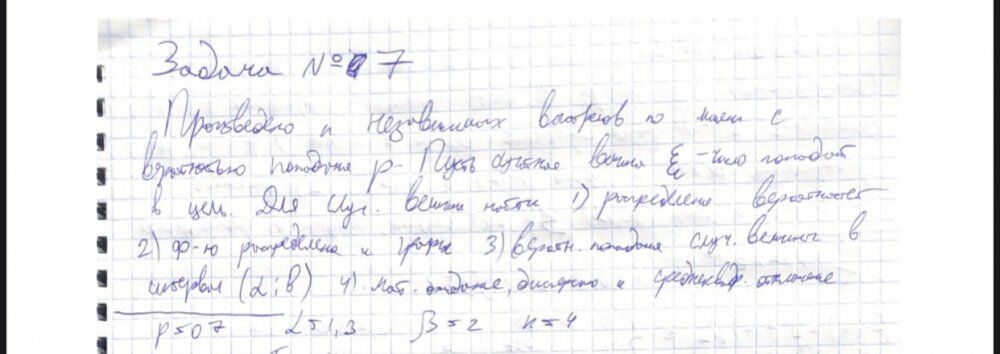 Задача № 7
Произведено n независимых выстрелов по мишени с
вероятностью попадания p. Пусть случайная величина ξ - число попаданий
в цель. Для случ. величины найти 1) распределение вероятностей
2) ф-ю распределения и график 3) вероятн. попадания случ. величины в
интервал (α; β) 4) мат. ожидание, дисперсию и среднеквадр. отклонение
p=0 7 α=1,3 β=2 n=4